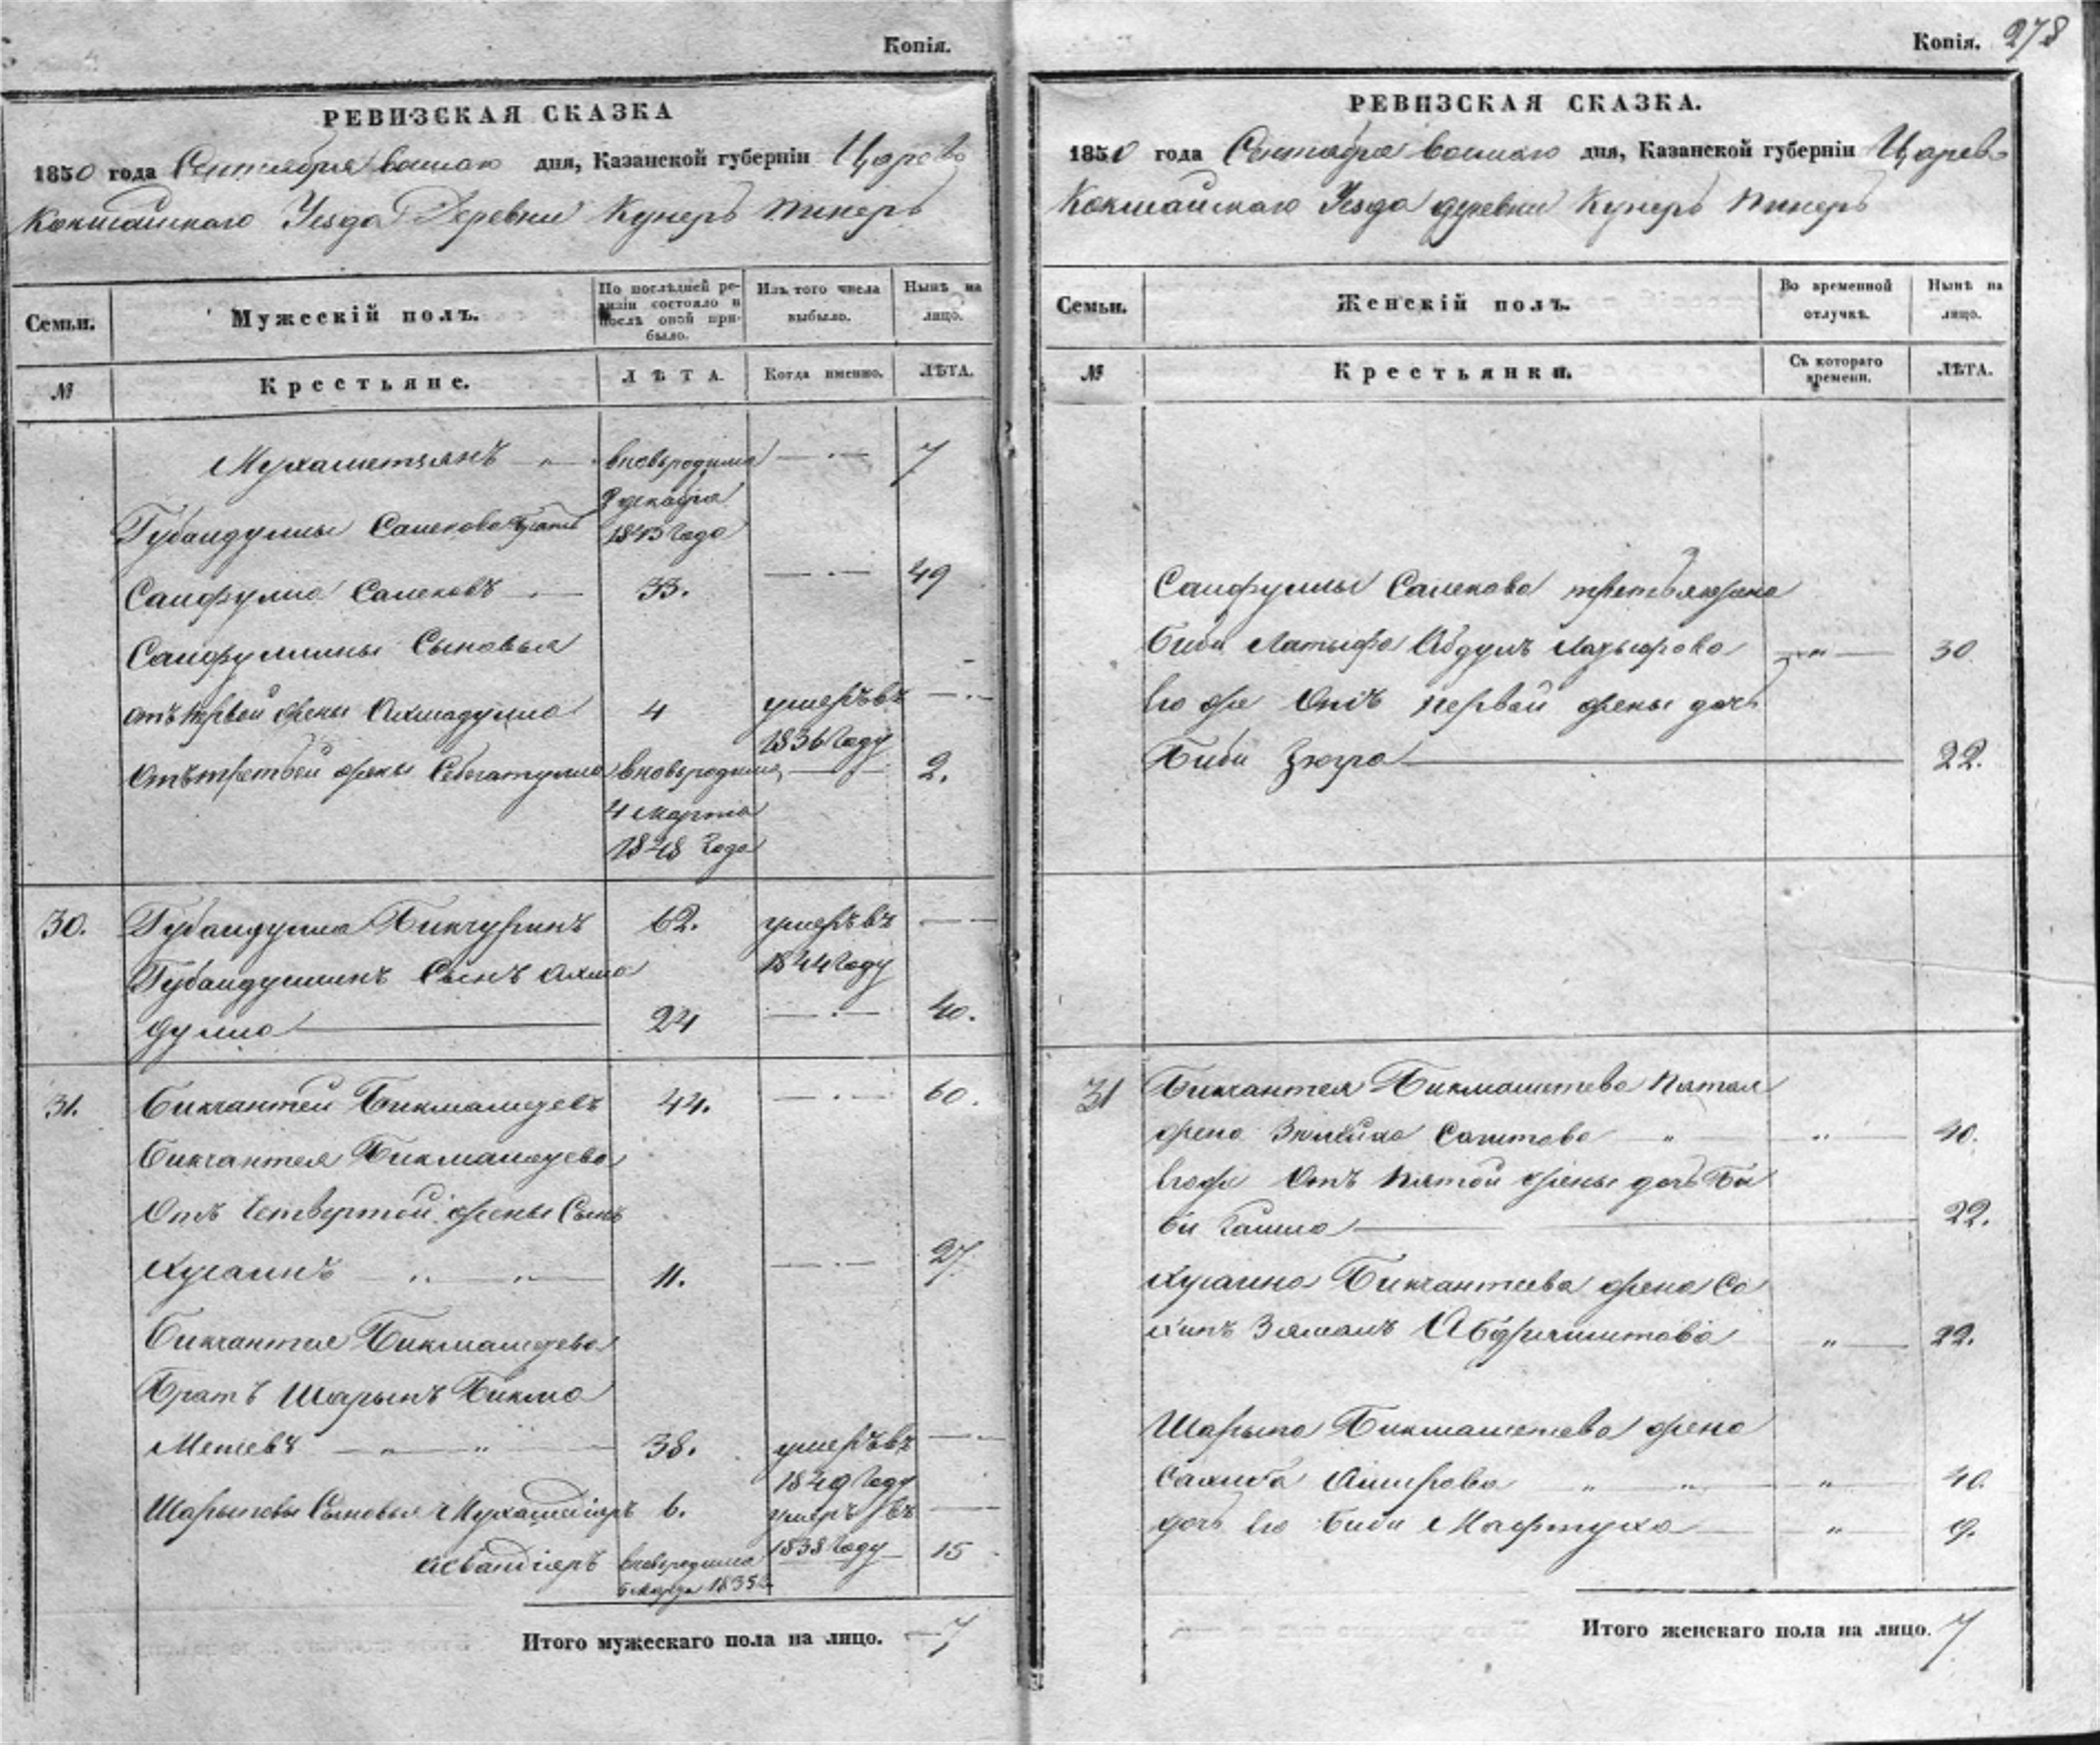 Копія.
РЕВИЗСКАЯ СКАЗКА
1850 года Сентября восмаго дня, Казанской губерніи Царево
Кокшайскаго Уезда Деревни Кунеръ Пинеръ
Семьи.
Мужескій полъ.
По послѣдней ре-
визіи состояло и
послѣ оной при-
было.
Изъ того числа
выбыло.
Нынѣ на
лицо.
№
Крестьяне.
ЛѢТА.
Когда именно.
ЛѢТА.
Мухаметзянъ вновьродился 7
декабря
Губайдуллы Салекова братъ 1843 года
Сайфулла Салековъ 33. 49
Сайфуллины Сыновья
отъ первой жены Ахмадулла 4 умеръ въ
1836 году
Отъ третьей жены вновьродился 2.
4 марта
1848 года
30. Губайдулла Бикчуринъ 62. умеръ въ
1844 году
Губайдуллинъ Сынъ Ахма
дулла 24 40.
31. Бикчантей Бикмаметевъ 44. 60.
Бикчантея Бикмаметева
Отъ четвертой жены Сынъ
Хусаинъ 11. 27.
Бикчантея Бикмаметева
Братъ Шарыпъ Бикма
Метевъ 38. умеръ въ
1849 году
Шарыповы Сыновья Мухамедіяръ 6. умеръ въ
1838 году
Асвандіяръ вновьродился 15
1835
Итого мужескаго пола на лицо. 7
Копія. 278
РЕВИЗСКАЯ СКАЗКА.
1850 года Сентября восмаго дня, Казанской губерніи Царево
Кокшайскаго Уезда деревни Кунеръ Пинеръ
Семьи.
Женскій полъ.
Во временной
отлучкѣ.
Нынѣ на
лицо.
№
Крестьянки.
Съ котораго
времени.
ЛѢТА.
Сайфуллы Салекова третья жена
Биби Латыфа Абдулъ 30
Его же Отъ первой жены дочь
Биби Зюгра 22.
31 Бикчантея Бикмаметева Пятая
жена Зюлейха Саитова 40.
Его же Отъ пятой жены дочь Би
би 22.
Хусаина Бикчантеева жена Са
хипъ Зямалъ 22.
Шарыпа Бикмаметева жена
Салиха Амирова 40.
дочь Его Биби Мафтуха 9.
Итого женскаго пола на лицо. 7